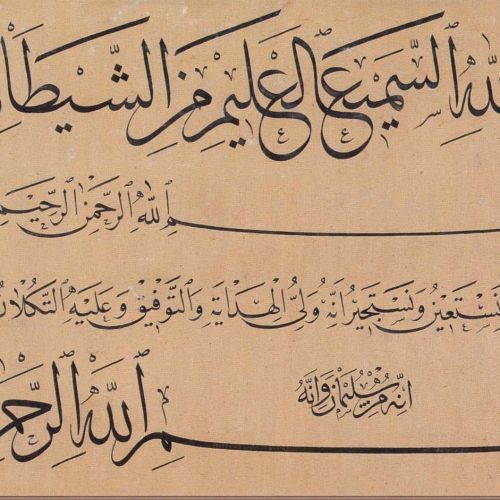 الله السميع العليم من الشيطا
م الله الرحمن الرحيم
نستعين ونستخير انه ولي الهداية والتوفيق وعليه التكلان
انه من سليمان وانه
م الله الرحم